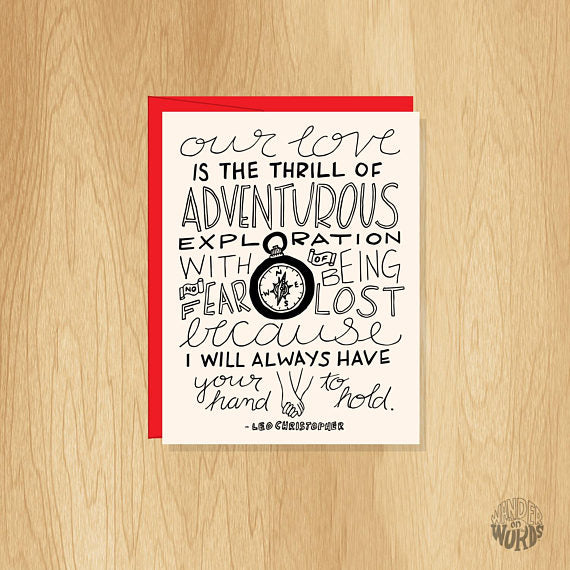 our love
IS THE THRILL OF
ADVENTUROUS
EXPLORATION
WITH NO FEAR
OF BEING LOST
N
W E
S
because
I WILL ALWAYS HAVE
your hand
to hold.
-LEO CHRISTOPHER
WANDER
on
WORDS